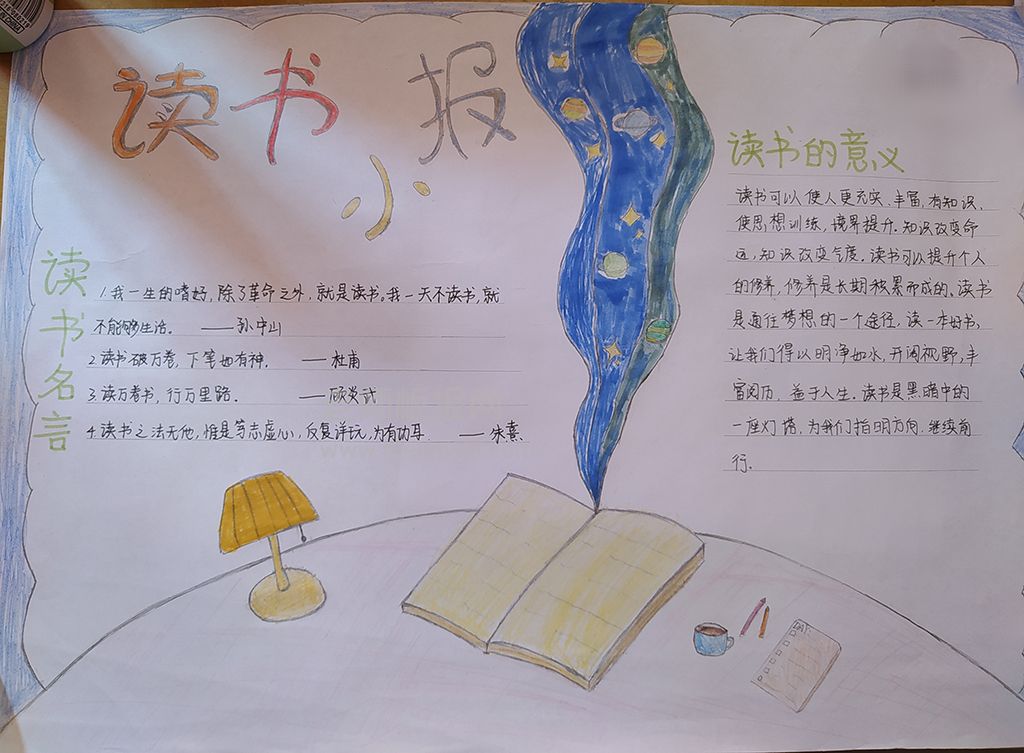 读书小报
读书名言
1.我一生的嗜好,除了革命之外,就是读书。我一天不读书,就
不能够生活。 ——孙中山
2.读书破万卷,下笔如有神。 ——杜甫
3.读万卷书,行万里路。 ——顾炎武
4.读书之法无他,惟是笃志虚心,反复详玩,为有功耳. ——朱熹
读书的意义
读书可以使人更充实、丰富,有知识,
使思想训练,境界提升.知识改变命
运,知识改变气度。读书可以提升个人
的修养,修养是长期积累而成的。读书
是通往梦想的一个途径,读一本好书,
让我们得以明净如水,开阔视野,丰
富阅历,益于人生。读书是黑暗中的
一座灯塔,为我们指明方向.继续前
行。